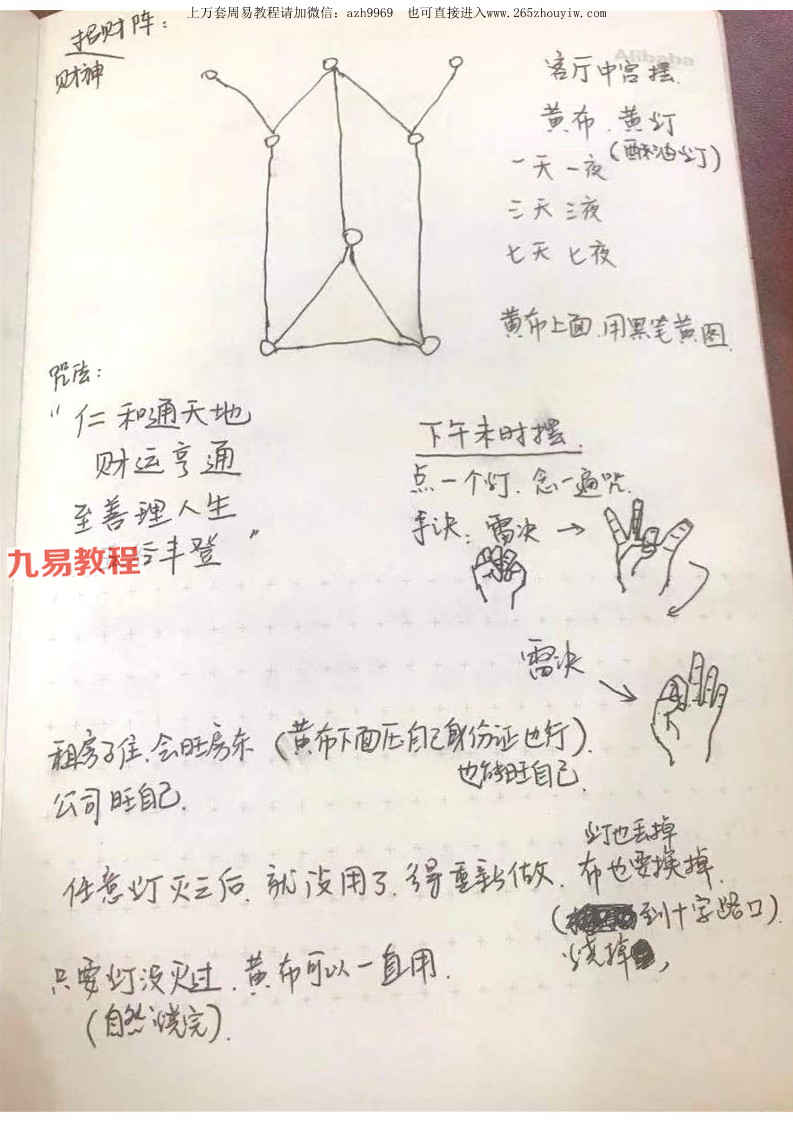 上万套周易教程请加微信：azh9969 也可直接进入www.265zhouyiw.com
Alibaba
招财阵：
财神
客厅中宫摆.
黄布.黄灯
(酥油灯)
一天一夜
三天三夜
七天七夜
黄布上面.用黑笔黄图.
咒法：
"仁和通天地
财运亨通
至善理人生
丰登"
九易教程
下午未时摆.
点一个灯.念一遍咒.
手决：雷决→
雷决
租房子住.会旺房东(黄布下面压自己身份证也行).
也能旺自己.
公司旺自己.
灯也丢掉
任意灯灭之后.就没用了.得重新做.布也要换掉.
(到十字路口).
烧掉，
只要灯没灭过.黄布可以一直用.
(自然烧完).